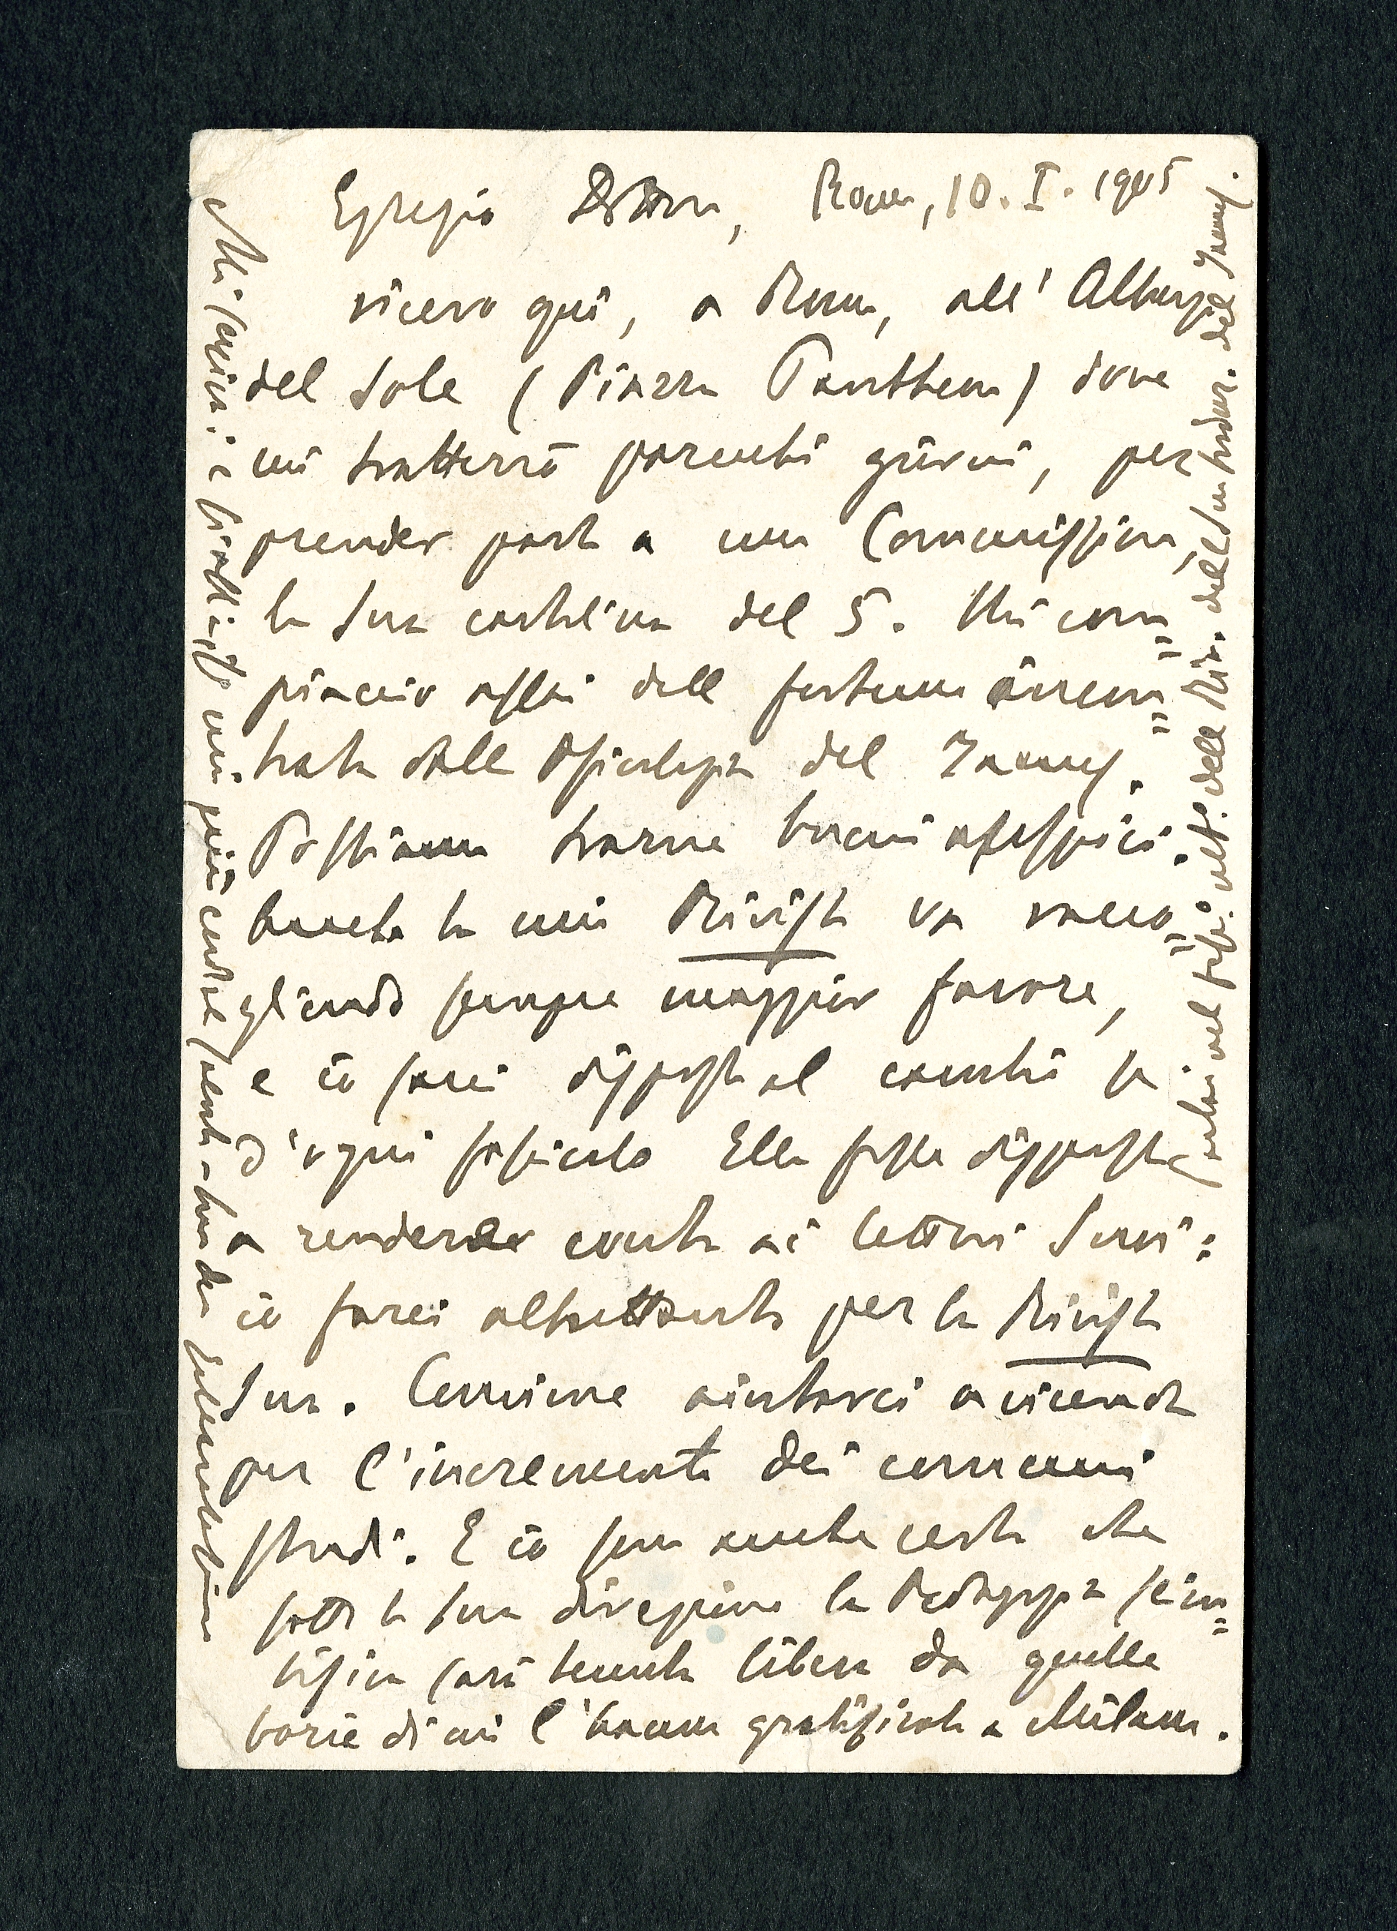 Egregio Dottore, Roma, 10. I. 1905
ricevo qui, a Roma, all'Albergo
del Sole (Piazza Pantheon) dove
mi tratterrò parecchi giorni, per
prender parte a una Commissione,
la Sua cartolina del 5. Mi com=
piaccio assai della fortuna incon=
trata dalla Psicologia del James.
Possiamo trarne buoni auspici.
Anche la mia Rivista va racco=
gliendo sempre maggior favore,
e io sarei disposto al cambio se
d'ogni fascicolo Ella fosse disposto
a rendere conto ai lettori Suoi:
io farei altrettanto per la Rivista
Sua. Conviene aiutarci a vicenda
per l'incremento dei comuni
studi. E io son anche certo che
sotto la Sua direzione la Pedagogia scien=
tifica sarà tenuta libera da quelle
borie di cui l'hanno gratificata a Milano.
Mi scriva: e
parlai nel fasc.° ult.° della Riv. della Sua traduz. del James.